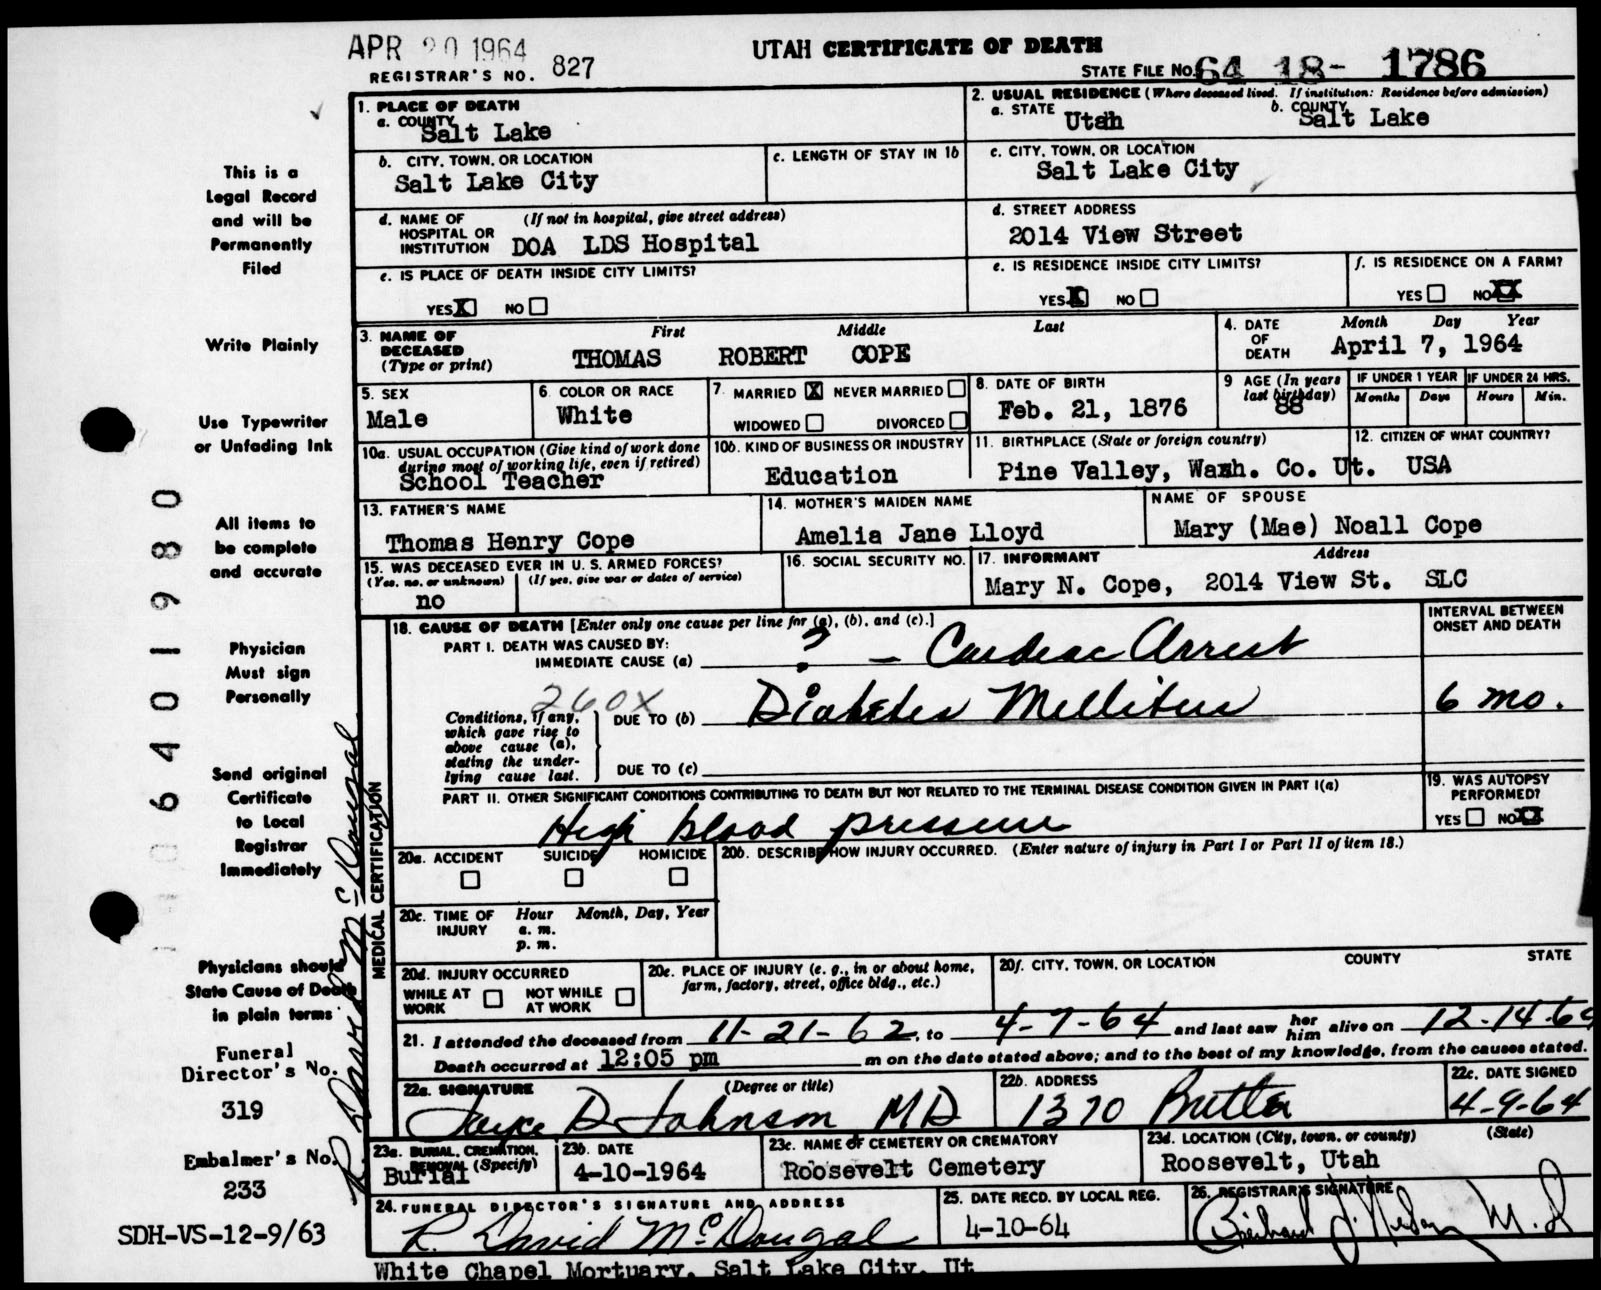 APR 20 1964
UTAH CERTIFICATE OF DEATH
REGISTRAR'S NO. 827
STATE FILE NO. 64 18- 1786
1. PLACE OF DEATH
a. COUNTY
Salt Lake
2. USUAL RESIDENCE (Where deceased lived. If institution: Residence before admission)
a. STATE Utah
b. COUNTY Salt Lake
b. CITY, TOWN, OR LOCATION
Salt Lake City
c. LENGTH OF STAY IN 1b
c. CITY, TOWN, OR LOCATION
Salt Lake City
d. NAME OF HOSPITAL OR INSTITUTION (If not in hospital, give street address)
DOA LDS Hospital
d. STREET ADDRESS
2014 View Street
e. IS PLACE OF DEATH INSIDE CITY LIMITS?
YES X NO
e. IS RESIDENCE INSIDE CITY LIMITS?
YES X NO
f. IS RESIDENCE ON A FARM?
YES NO XX
3. NAME OF DECEASED (Type or print)
First Middle Last
THOMAS ROBERT COPE
4. DATE OF DEATH
Month Day Year
April 7, 1964
5. SEX
Male
6. COLOR OR RACE
White
7. MARRIED X NEVER MARRIED
WIDOWED DIVORCED
8. DATE OF BIRTH
Feb. 21, 1876
9 AGE (In years last birthday)
88
IF UNDER 1 YEAR
Months Days
IF UNDER 24 HRS.
Hours Min.
10a. USUAL OCCUPATION (Give kind of work done during most of working life, even if retired)
School Teacher
10b. KIND OF BUSINESS OR INDUSTRY
Education
11. BIRTHPLACE (State or foreign country)
Pine Valley, Wash. Co. Ut.
12. CITIZEN OF WHAT COUNTRY?
USA
13. FATHER'S NAME
Thomas Henry Cope
14. MOTHER'S MAIDEN NAME
Amelia Jane Lloyd
NAME OF SPOUSE
Mary (Mae) Noall Cope
15. WAS DECEASED EVER IN U. S. ARMED FORCES?
(Yes, no, or unknown) (If yes, give war or dates of service)
no
16. SOCIAL SECURITY NO.
17. INFORMANT Address
Mary N. Cope, 2014 View St. SLC
MEDICAL CERTIFICATION
18. CAUSE OF DEATH [Enter only one cause per line for (a), (b), and (c).]
INTERVAL BETWEEN ONSET AND DEATH
PART I. DEATH WAS CAUSED BY:
IMMEDIATE CAUSE (a) ? - Cardiac Arrest
260X
Conditions, if any, which gave rise to above cause (a), stating the underlying cause last.
DUE TO (b) Diabetes Mellitus 6 mo.
DUE TO (c)
PART II. OTHER SIGNIFICANT CONDITIONS CONTRIBUTING TO DEATH BUT NOT RELATED TO THE TERMINAL DISEASE CONDITION GIVEN IN PART I(a)
High blood pressure
19. WAS AUTOPSY PERFORMED?
YES NO X
20a. ACCIDENT SUICIDE HOMICIDE
20b. DESCRIBE HOW INJURY OCCURRED. (Enter nature of injury in Part I or Part II of item 18.)
20c. TIME OF INJURY
Hour Month, Day, Year
a. m.
p. m.
20d. INJURY OCCURRED
WHILE AT WORK NOT WHILE AT WORK
20e. PLACE OF INJURY (e. g., in or about home, farm, factory, street, office bldg., etc.)
20f. CITY, TOWN, OR LOCATION COUNTY STATE
21. I attended the deceased from 11-21-62, to 4-7-64 and last saw her him alive on 12-14-6
Death occurred at 12:05 pm m on the date stated above; and to the best of my knowledge, from the causes stated.
22a. SIGNATURE (Degree or title)
D Johnson MD
22b. ADDRESS
1370
22c. DATE SIGNED
4-9-64
23a. BURIAL, CREMATION, REMOVAL (Specify)
Burial
23b. DATE
4-10-1964
23c. NAME OF CEMETERY OR CREMATORY
Roosevelt Cemetery
23d. LOCATION (City, town, or county) (State)
Roosevelt, Utah
24. FUNERAL DIRECTOR'S SIGNATURE AND ADDRESS
R. David McDougal
White Chapel Mortuary, Salt Lake City, Ut
25. DATE RECD. BY LOCAL REG.
4-10-64
26. REGISTRAR'S SIGNATURE
M.D
This is a
Legal Record
and will be
Permanently
Filed
Write Plainly
Use Typewriter
or Unfading Ink
All items to
be complete
and accurate
Physician
Must sign
Personally
Send original
Certificate
to Local
Registrar
Immediately
Physicians should
State Cause of Death
in plain terms
Funeral
Director's No.
319
Embalmer's No.
233
SDH-VS-12-9/63
R David McDougal
06401980